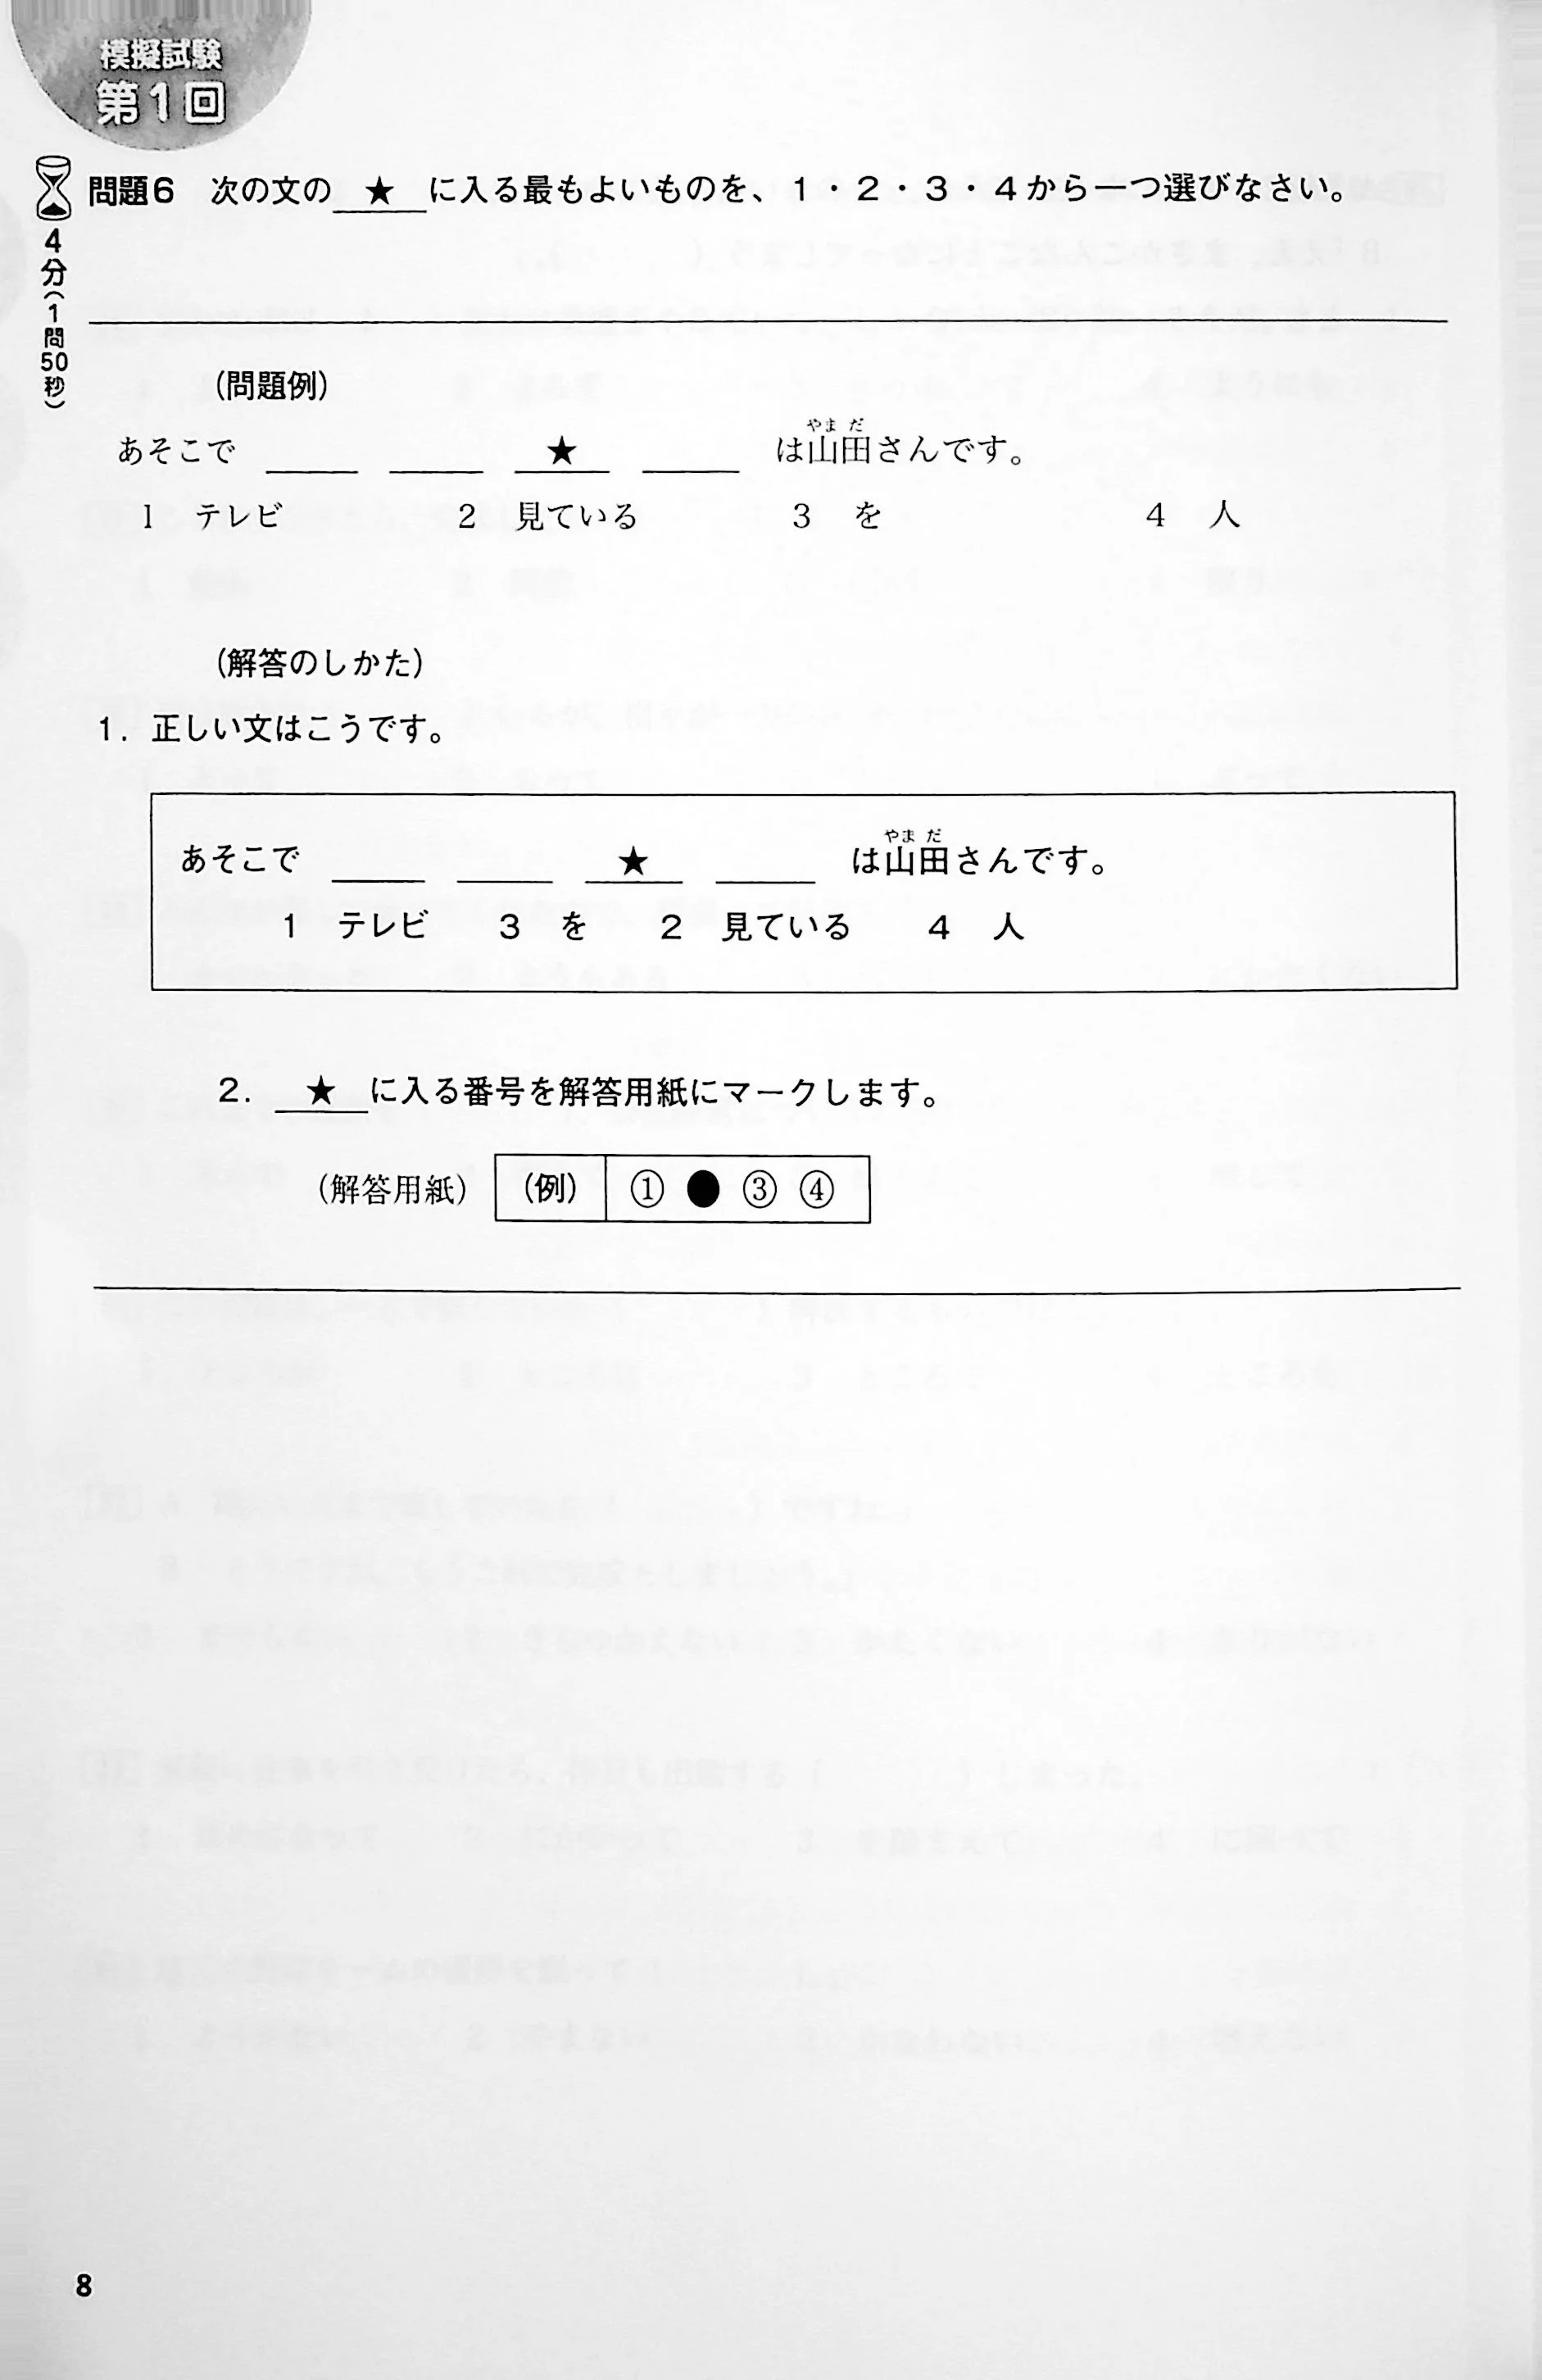 模擬試験
第1回
問題6 次の文の ★ に入る最もよいものを、1・2・3・4から一つ選びなさい。
4分(1問50秒)
(問題例)
あそこで ＿＿＿ ＿＿＿ ★ ＿＿＿ は山田さんです。
やま だ
1 テレビ 2 見ている 3 を 4 人
(解答のしかた)
1. 正しい文はこうです。
あそこで ＿＿＿ ＿＿＿ ★ ＿＿＿ は山田さんです。
やま だ
1 テレビ 3 を 2 見ている 4 人
2. ★ に入る番号を解答用紙にマークします。
(解答用紙) (例) ① ● ③ ④
8